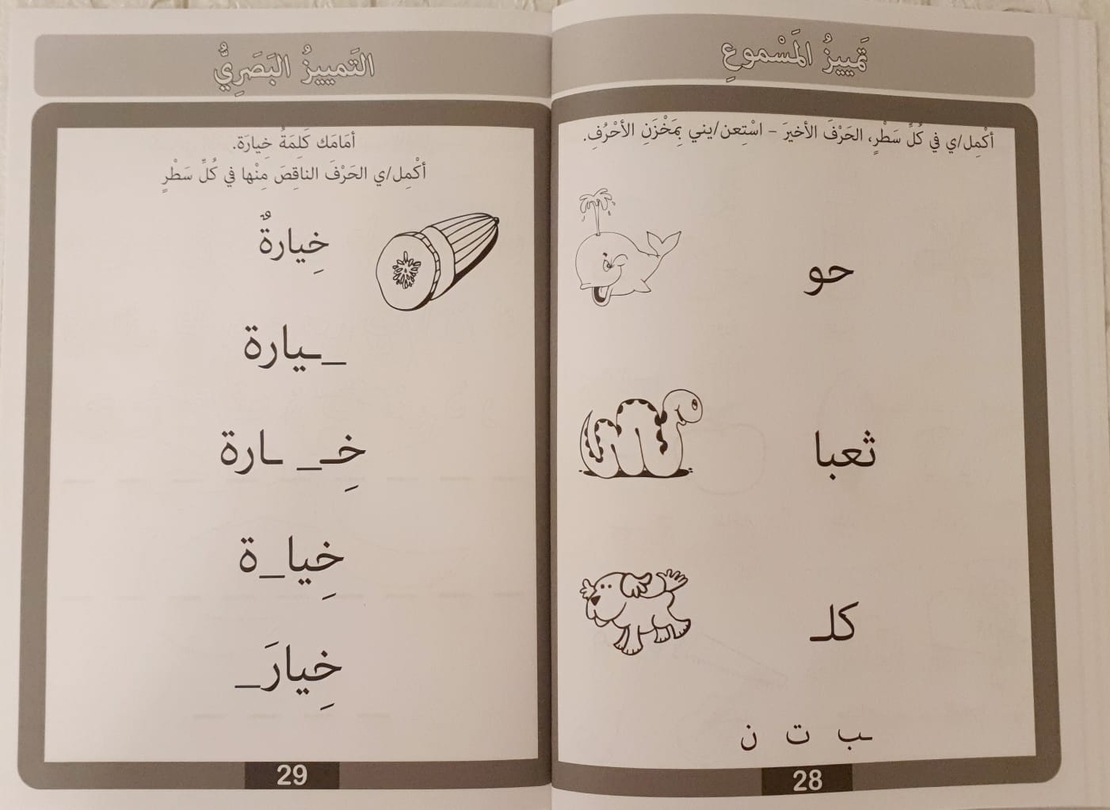 تَمييزُ المَسْموعِ
أكْمِل/ي في كُلِّ سَطْرٍ، الحَرْفَ الأخيرَ - اسْتِعن/يني بِمَخْزَنِ الأحْرُفِ.
حو
ثعبا
كلـ
ـب ت ن
28
التَمييزُ البَصَرِيُّ
أمَامَك كَلِمَةُ خِيارَة.
أكْمِل/ي الحَرْفَ الناقِصَ مِنْها في كُلِّ سَطْرٍ
خِيارةٌ
_ـيارة
خِـ_ ـارة
خِيا_ة
خِيارَ_
29